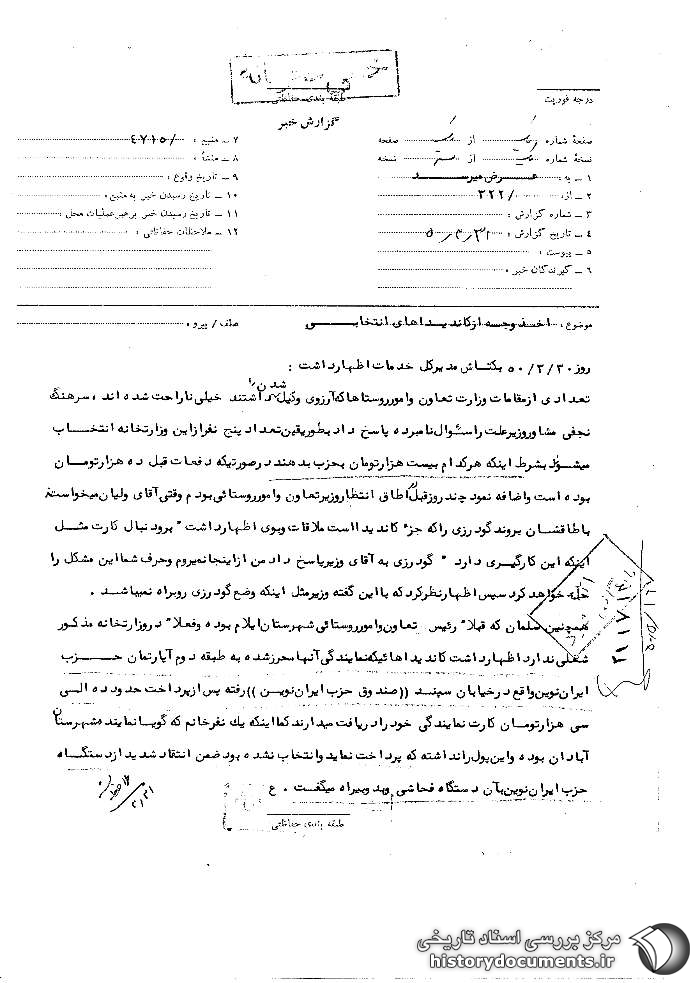 طبقه بندی حفاظتی
گزارش خبر
درجه فوریت
صفحهٔ شماره از صفحه
نسخهٔ شماره از نسخه
۱ ـ به : عرض میرسد
۲ ـ از : ۳۲۲/
۳ ـ شماره گزارش :
۴ ـ تاریخ گزارش : ۵۰/۳/۳۱
۵ ـ پیوست :
۶ ـ گیرندگان خبر :
۷ ـ منبع : ۴۷۱۵/
۸ ـ منشأ :
۹ ـ تاریخ وقوع :
۱۰ ـ تاریخ رسیدن خبر به منبع :
۱۱ ـ تاریخ رسیدن خبر برهبر عملیات محل :
۱۲ ـ ملاحظات حفاظتی :
موضوع : اخذ وجه از کاندیداهای انتخابی
عطف / پیرو :
روز ۵۰/۳/۳۰ بکتاش مدیر کل خدمات اظهار داشت :
تعدادی از مقامات وزارت تعاون و امور روستاها که آرزوی وکیل شدن را داشتند خیلی ناراحت شده اند ، سرهنگ
نجفی مشاور وزیر علت را سئوال نامبرده پاسخ داد بطور یقین تعداد پنج نفر از این وزارتخانه انتخاب
میشود بشرط اینکه هر کدام بیست هزار تومان بحزب بدهند در صورتیکه دفعات قبل ده هزار تومان
بوده است و اضافه نمود چند روز قبل اطاق انتظار وزیر تعاون و امور روستائی بودم وقتی آقای ولیان میخواستند
باطاقشان بروند گودرزی را که جزء کاندیدا است ملاقات و بوی اظهار داشت " برو دنبال کارت مثل
اینکه این کار گیری دارد " گودرزی به آقای وزیر پاسخ داد من از اینجا نمیروم و حرف شما این مشکل را
حل خواهد کرد سپس اظهار نظر کرد که با این گفته وزیر مثل اینکه وضع گودرزی روبراه نمیباشد .
همچنین سلمان که قبلا" رئیس تعاون و امور روستائی شهرستان ایلام بوده و فعلا" در وزارتخانه مذکور
شغلی ندارد اظهار داشت کاندیداهائیکه نمایندگی آنها محرز شده به طبقه دوم آپارتمان حزب
ایران نوین واقع در خیابان سپند (( صندوق حزب ایران نوین )) رفته پس از پرداخت حدود ده الی
سی هزار تومان کارت نمایندگی خود را دریافت میدارند کما اینکه یک نفر خانم که گویا نماینده شهرستان
آبادان بوده و این پول را نداشته که پرداخت نماید و انتخاب نشده بود ضمن انتقاد شدید از دستگاه
حزب ایران نوین بآن دستگاه فحاشی و بد و بیراه میگفت . ع
طبقه بندی حفاظتی
مرکز بررسی اسناد تاریخی
historydocuments.ir